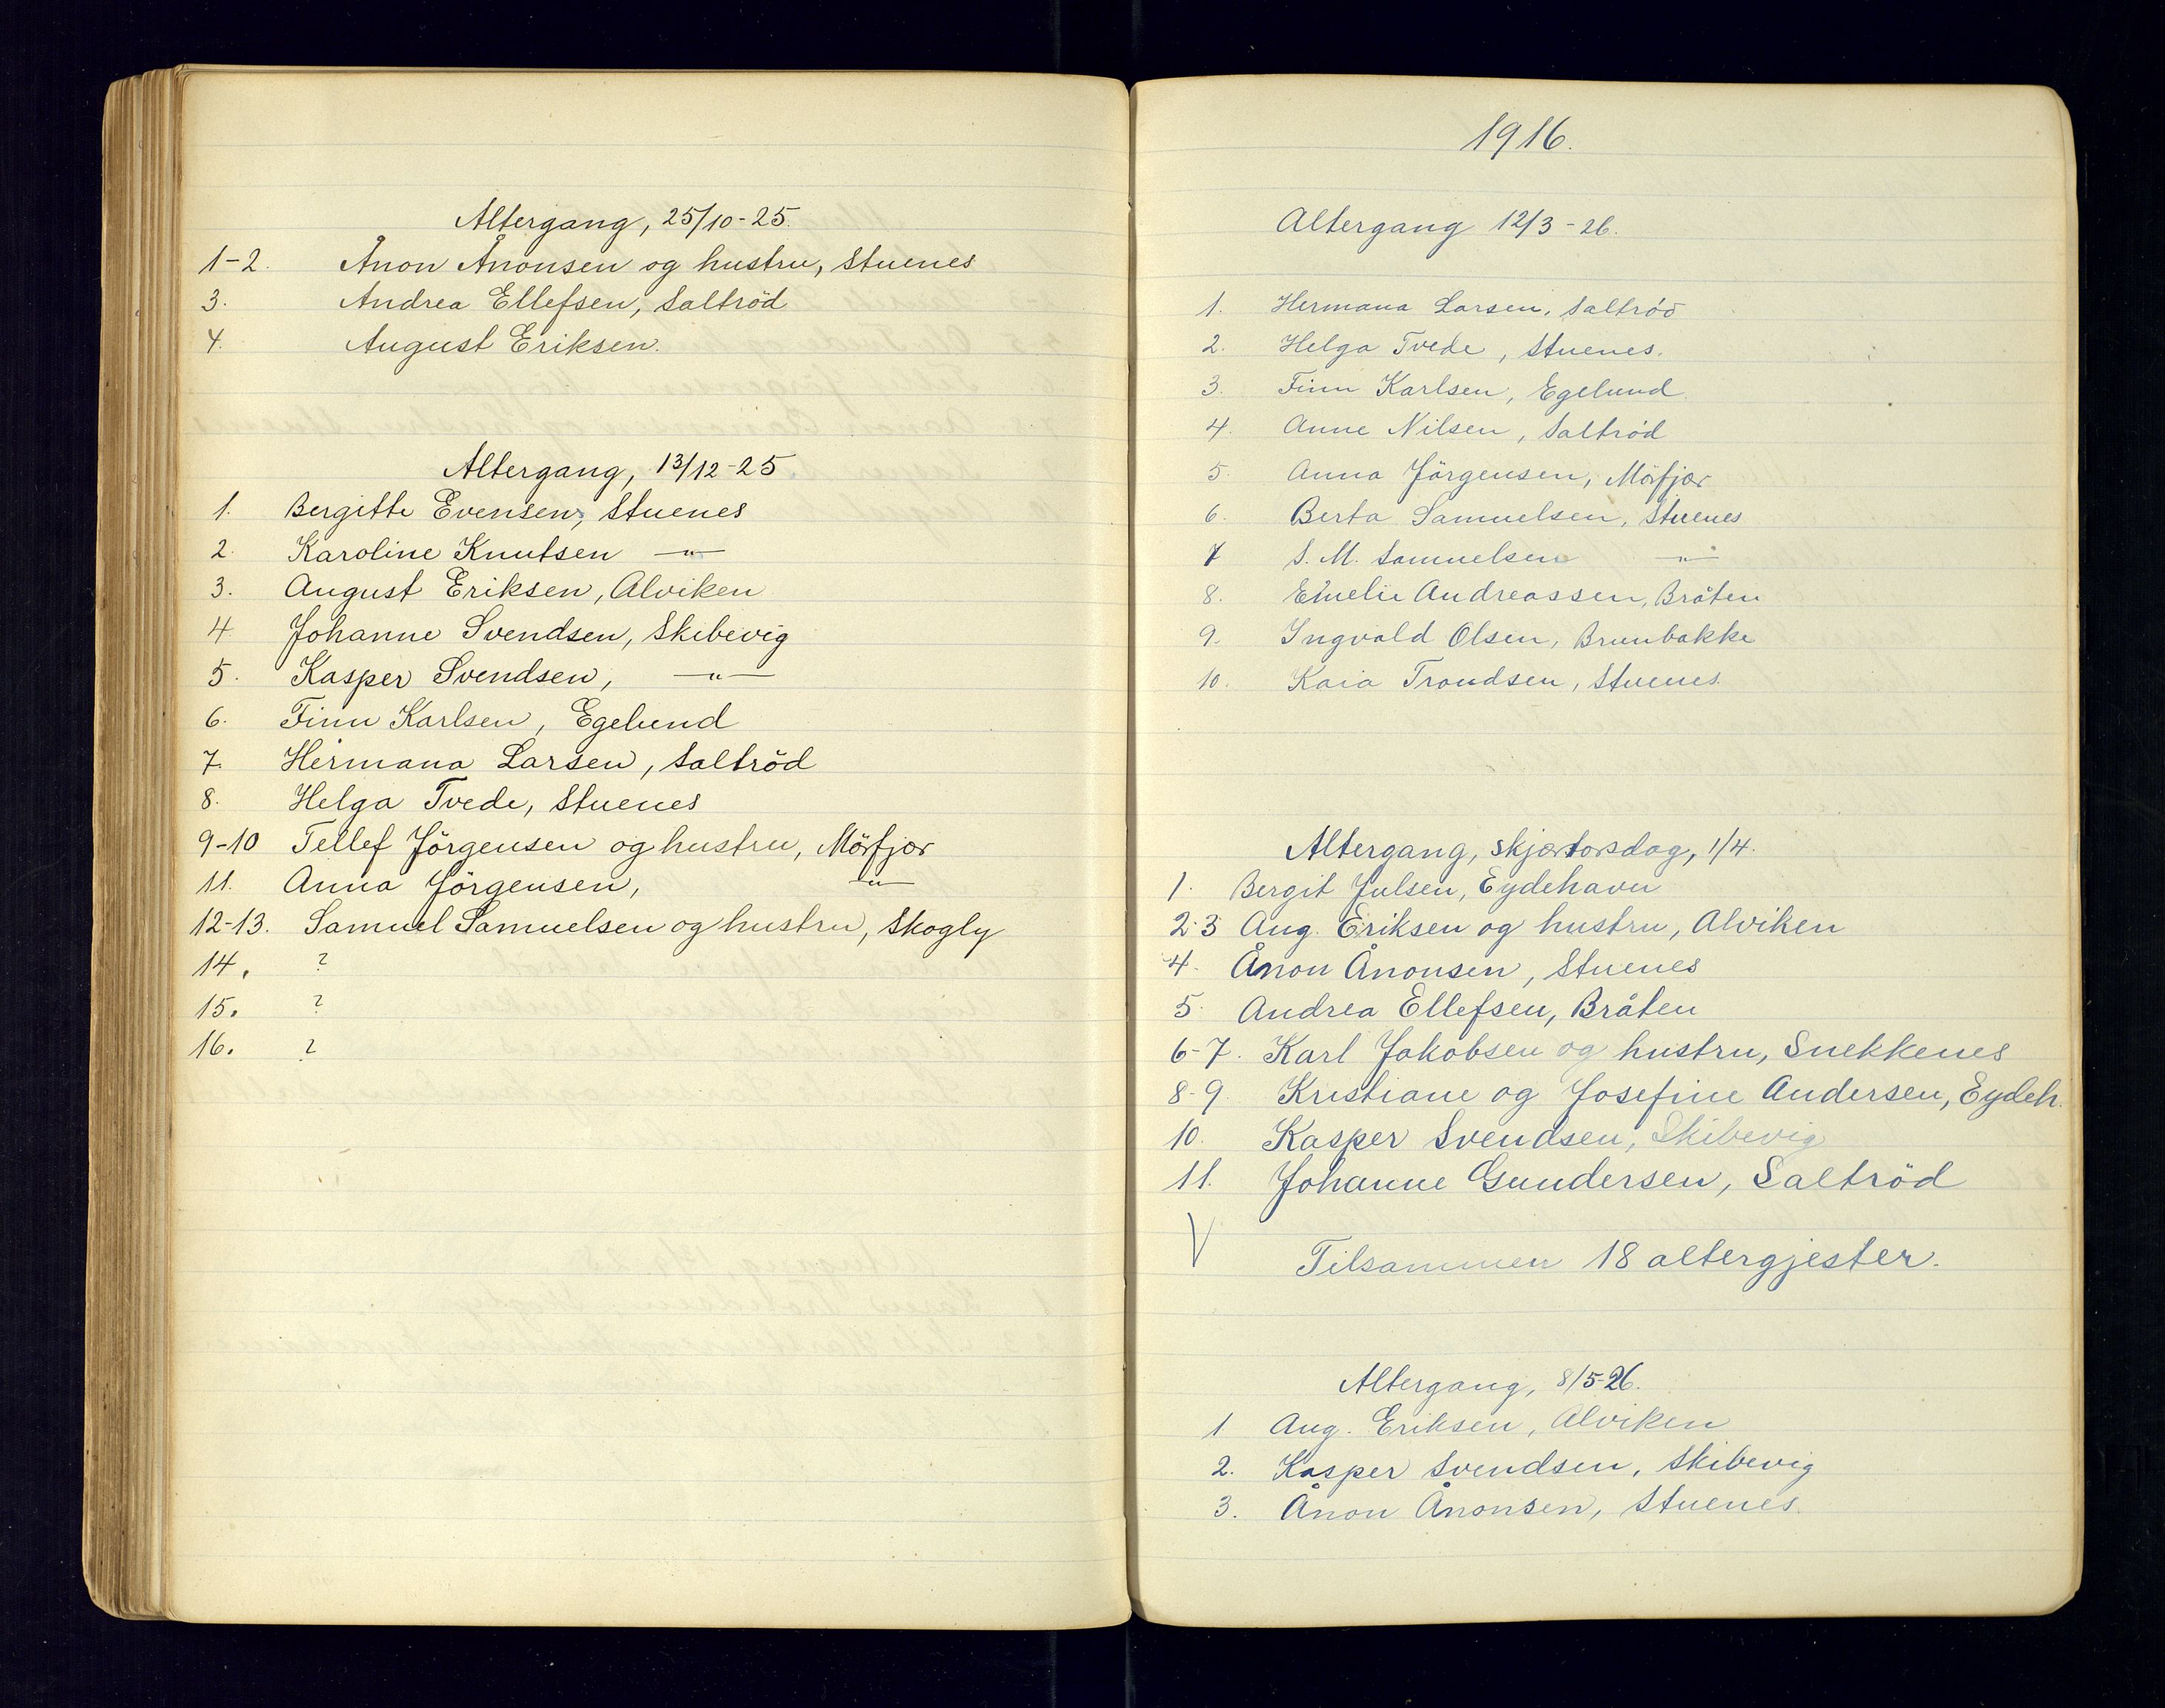 Altergang, 25/10-25.
1-2. Ånon Ånonsen og hustru, Stuenes
3. Andrea Ellefsen, Saltröd
4. August Eriksen.
Altergang, 13/12-25
1. Bergitte Evensen, Stuenes
2. Karoline Knutsen —"—
3. August Eriksen, Alviken
4 Johanne Svendsen, Skibevig
5. Kasper Svendsen, —"—
6. Finn Karlsen, Egelund
7. Hermana Larsen, Saltröd
8. Helga Tvede, Stuenes
9-10 Tellef Jörgensen og hustru, Mörfjær
11. Anna Jörgensen, —"—
12-13. Samuel Samuelsen og hustru, Skogly
14. ?
15. ?
16. ?
1916.
Altergang 12/3-26.
1. Hermana Larsen, Saltröd
2. Helga Tvede, Stuenes.
3. Finn Karlsen, Egelund.
4. Anne Nilsen, Saltröd
5. Anna Jörgensen, Mörfjær
6. Berta Samuelsen, Stuenes
7 S. M. Samuelsen —"—
8. Emelie Andreassen, Bråten
9. Ingvald Olsen, Brunbakke
10. Kaia Trondsen, Stuenes.
Altergang, skjærtorsdag, 1/4.
1. Bergit Julsen, Eydehavn
2-3 Aug. Eriksen og hustru, Alviken
4. Ånon Ånonsen, Stuenes
5. Andrea Ellefsen, Bråten
6-7. Karl Jakobsen og hustru, Snekkenes
8-9 Kristiane og Josefine Andersen, Eydeh.
10. Kasper Svendsen, Skibevig
11. Johanne Gundersen, Saltröd
V Tilsammen 18 altergjester.
Altergang, 8/5-26.
1 Aug. Eriksen, Alviken
2. Kasper Svendsen, Skibevig
3. Ånon Ånonsen, Stuenes.